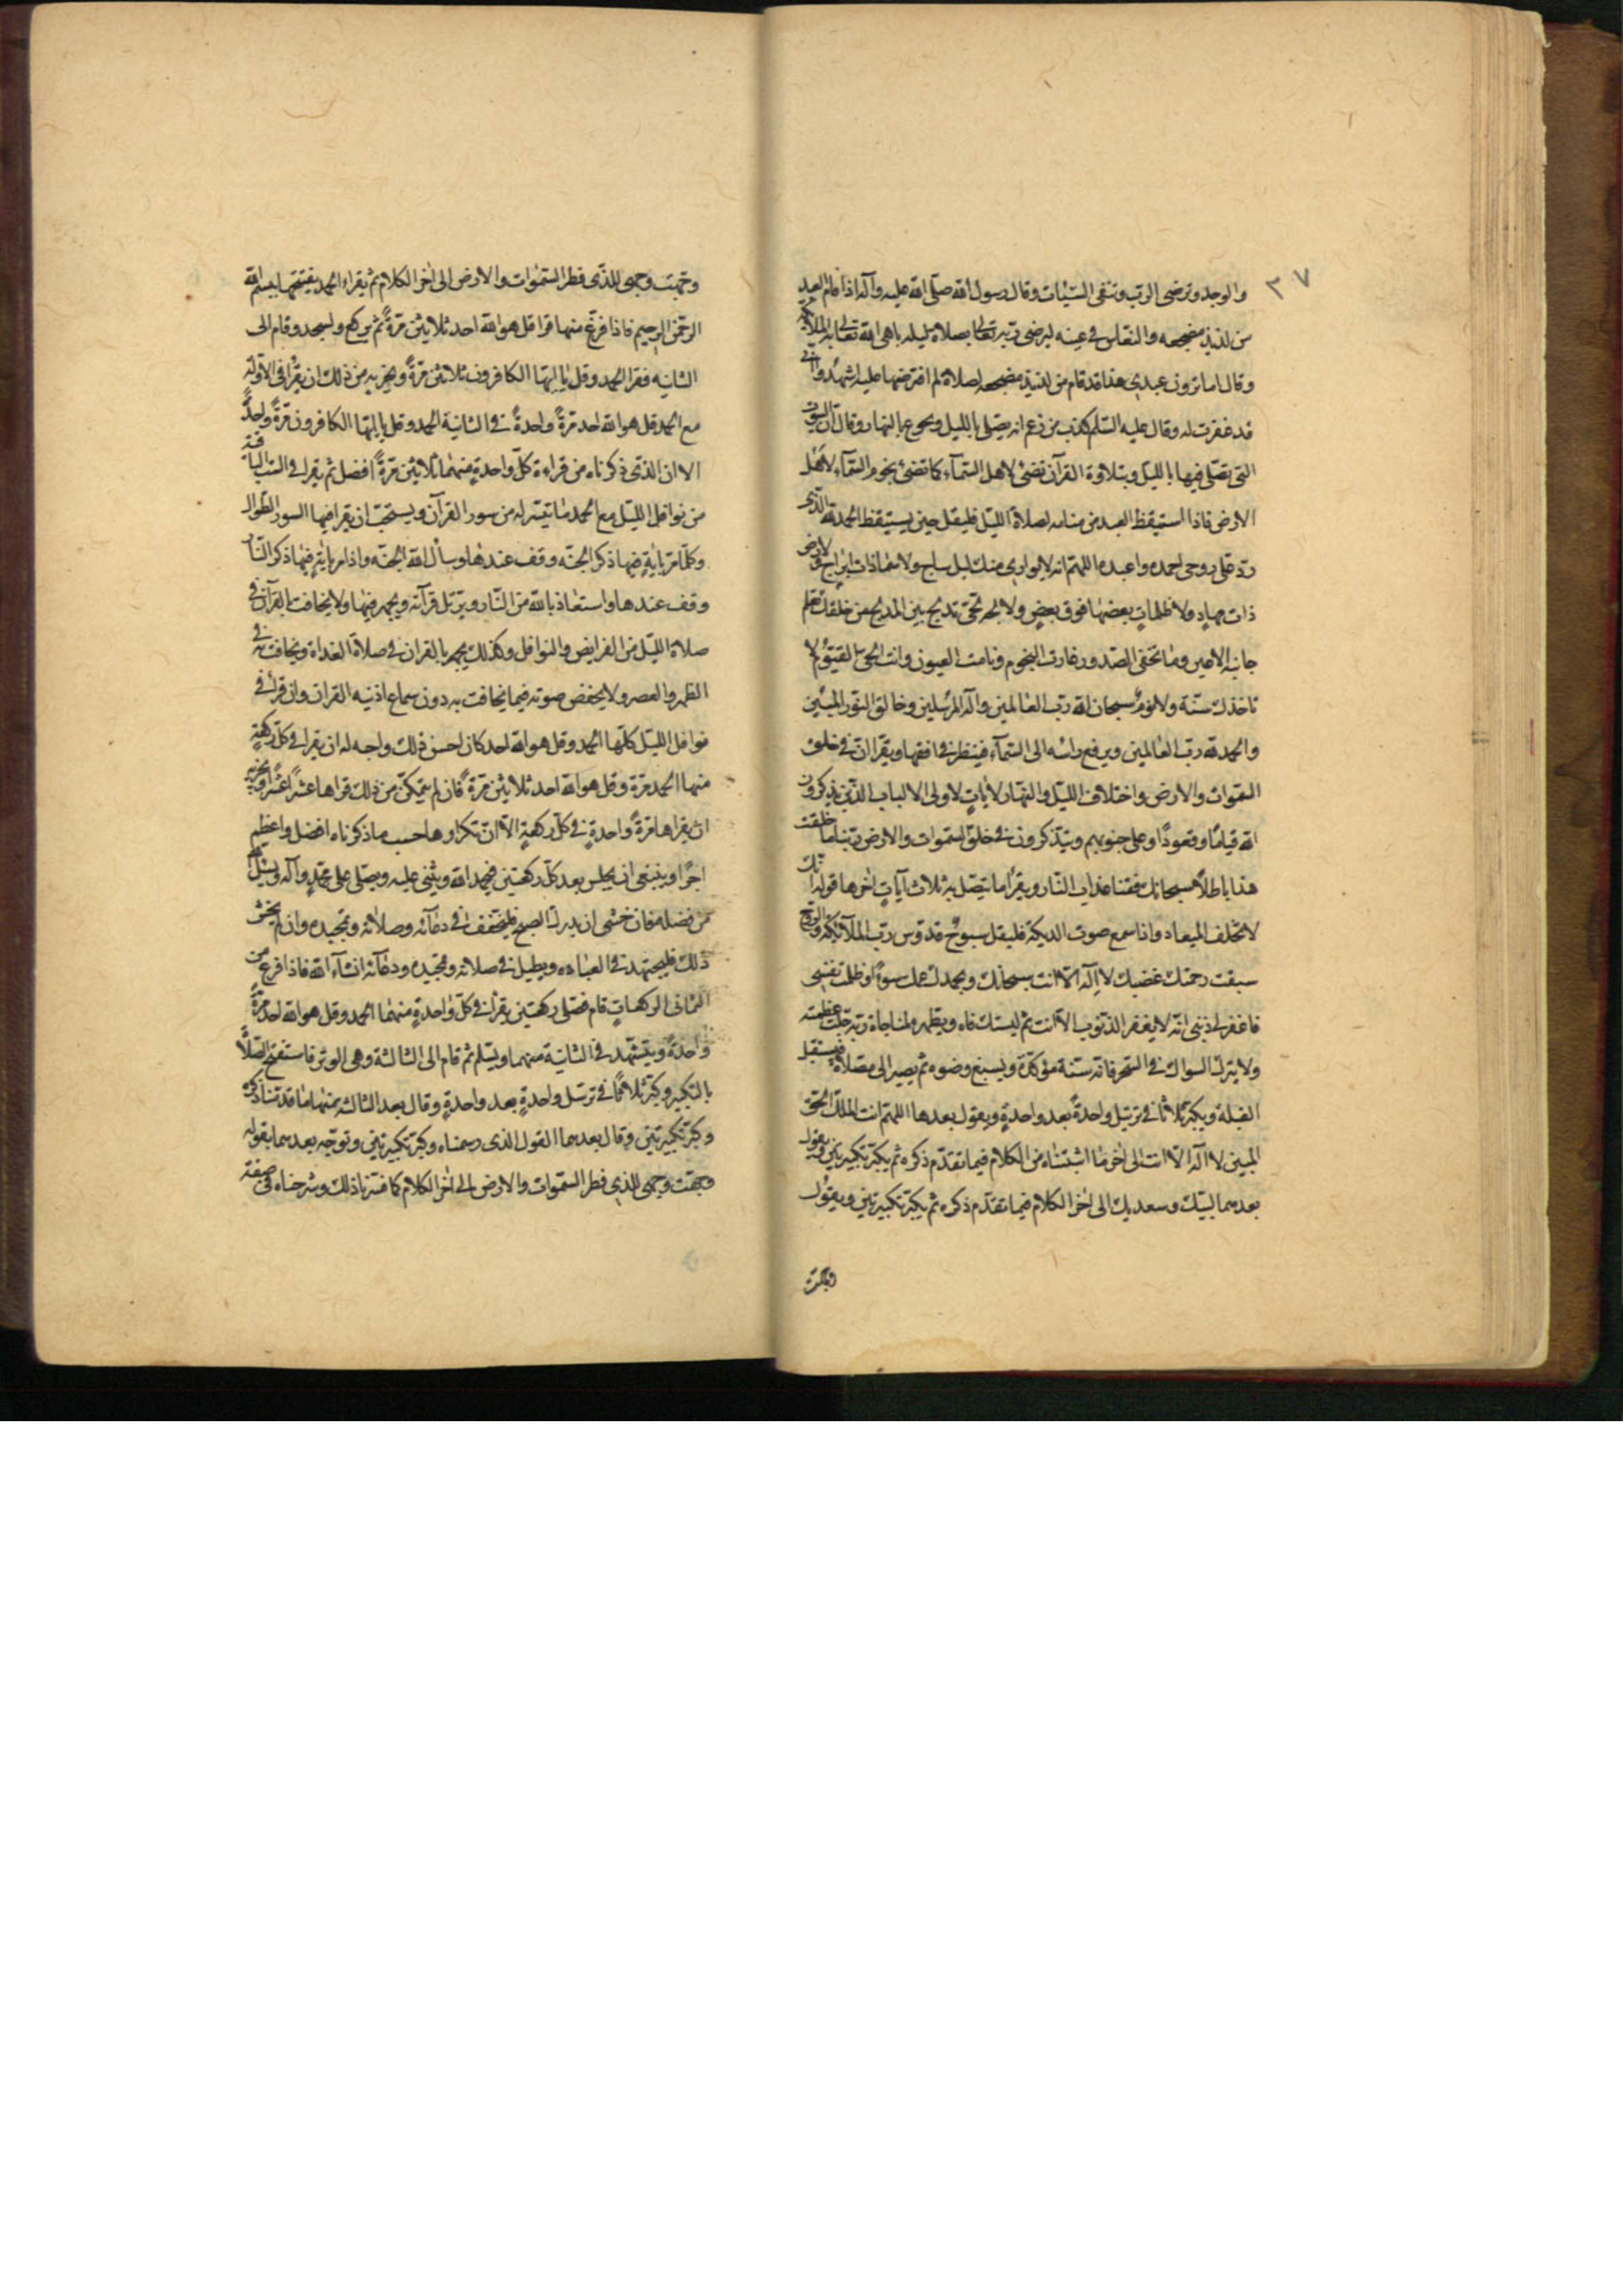 ٣٧
والوجد وترضى الرب وتنفى السيئات وقال رسول الله صلى الله عليه وآله اذا قام العبد
من لذيذ مضجعه والنعاس فى عينه ليرضى ربه تعالى بصلاة ليله باهى الله تعالى به الملائكة
وقال اما ترون عبدى هذا قد قام من لذيذ مضجعه لصلاة لم افترضها عليه اشهدوا انى
قد غفرت له وقال عليه السلم كذب من زعم انه يصلى بالليل ويجوع بالنهار وقال ان البيوت
التى يصلى فيها بالليل وبتلاوة القرآن تضئ لاهل السمآء كما تضئ نجوم السمآء لاهل
الارض فاذا استيقظ العبد من منامه لصلاة الليل فليقل حين يستيقظ الحمد لله الذى
رد على روحى احمده واعبده اللهم انه لا يوارى منك ليل ساج ولا سماء ذات ابراج ولا ارض
ذات مهاد ولا ظلمات بعضها فوق بعض ولا بحر لجى تدلج بين المدلج من خلقك تعلم
خاينه الاعين وما تخفى الصدور غارت النجوم ونامت العيون وانت الحى القيوم لا
تاخذك سنة ولا نوم سبحان الله رب العالمين واله المرسلين وخالق النور المبين
والحمد لله رب العالمين ويرفع راسه الى السمآء فينظر فى افقها ويقرا ان فى خلق
السموات والارض واختلاف الليل والنهار لايات لاولى الالباب الذين يذكرون
الله قياما وقعودا وعلى جنوبهم ويتذكرون فى خلق السموات والارض ربنا ما خلقت
هذا باطلا سبحانك فقنا عذاب النار ويقرا ما يتصل به ثلاث آيات اخرها قوله انك
لا تخلف الميعاد واذا سمع صوت الديكة فليقل سبوح قدوس رب الملآئكة والروح
سبقت رحمتك غضبك لا اله الا انت سبحانك وبحمدك عملت سوءا وظلمت نفسى
فاغفر لى ذنبى انه لا يغفر الذنوب الا انت ثم ليستك فاه ويطهره لمناجاة ربه جلت عظمته
ولا يترك السواك فى السحر فانه سنة مؤكدة ويسبغ وضوه ثم يصير الى مصلاه فيستقبل
القبلة ويكبر ثلاثا فى ترتيل واحدة بعد واحدة ويقول بعدها اللهم انت الملك الحق
المبين لا اله الا انت الى اخر ما اثبتناه من الكلام فيما تقدم ذكره ثم يكبر تكبيرتين ويقول
بعدهما لبيك وسعديك الى اخر الكلام فيما تقدم ذكره ثم يكبر تكبيرتين ويقول
وجهت وجهى للذى فطر السموات والارض الى اخر الكلام ثم يقراء الحمد يفتتحها ببسم الله
الرحمن الرحيم فاذا فرغ منها قرا قل هو الله احد ثلاثين مرة ثم يركع ويسجد وقام الى
الثانيه فقرا الحمد وقل يا ايها الكافرون ثلاثين مرة ويجزيه من ذلك ان يقرا فى الاولة
مع الحمد قل هو الله احد مرة واحدة فى الثانية الحمد وقل يا ايها الكافرون مرة واحدة
الا ان الذى ذكرناه من قراءة كل واحدة منهما ثلاثين مرة افضل ثم يقرا فى الست الباقية
من نوافل الليل مع الحمد ما تيسر له من سور القرآن ويستحب ان يقرا فيها السور الطوال
وكلما مر باية فيها ذكر الجنة وقف عندها وسال الله الجنة واذا مر باية فيها ذكر النار
وقف عندها واستعاذ بالله من النار ويرتل قرآنه ويجهر فيها ولا يخافت بالقرآن فى
صلاة الليل من الفرايض والنوافل وكذلك يجهر بالقران فى صلاة الغداة ويخافت به فى
الظهر والعصر ولا يخفض صوته فيما يخافت به دون سماع اذنيه القران وان قرا فى
نوافل الليل كلها الحمد وقل هو الله احد كان احسن ذلك واحب له ان يقرا فى كل ركعة
منها الحمد مرة وقل هو الله احد ثلاثين مرة فان لم يتمكن من ذلك قراها عشرا عشرا ويجزيه
ان يقراها مرة واحدة فى كل ركعة الا ان تكرارها حسب ما ذكرناه افضل واعظم
اجرا وينبغى ان يجلس بعد كل ركعتين فيحمد الله ويثنى عليه ويصلى على محمد وآله ويسئل الله
من فضله فان خشى ان يدرك الصبح فليخفف فى دعآئه وصلاته وتمجيده وان لم يخش
ذلك فليجتهد فى العباده ويطيل فى صلاته وتمجيده ودعآئه انشآء الله فاذا فرغ من
الثمانى الركعات قام فصلى ركعتين يقرا فى كل واحدة منهما الحمد وقل هو الله احد مرة
واحدة ويتشهد فى الثانية منهما ويسلم ثم قام الى الثالثة وهى الوتر فاستفتح الصلاة
بالتكبير وكبر ثلاثا فى ترسل واحدة بعد واحدة وقال بعد الثالثه منها ما قدمنا ذكره
وكبر تكبيرتين وقال بعدهما القول الذى رسمناه وكبر تكبيرتين وتوجه بعدهما بقوله
وجهت وجهى للذى فطر السموات والارض الى اخر الكلام كما فسرنا ذلك وشرحناه فى صفة